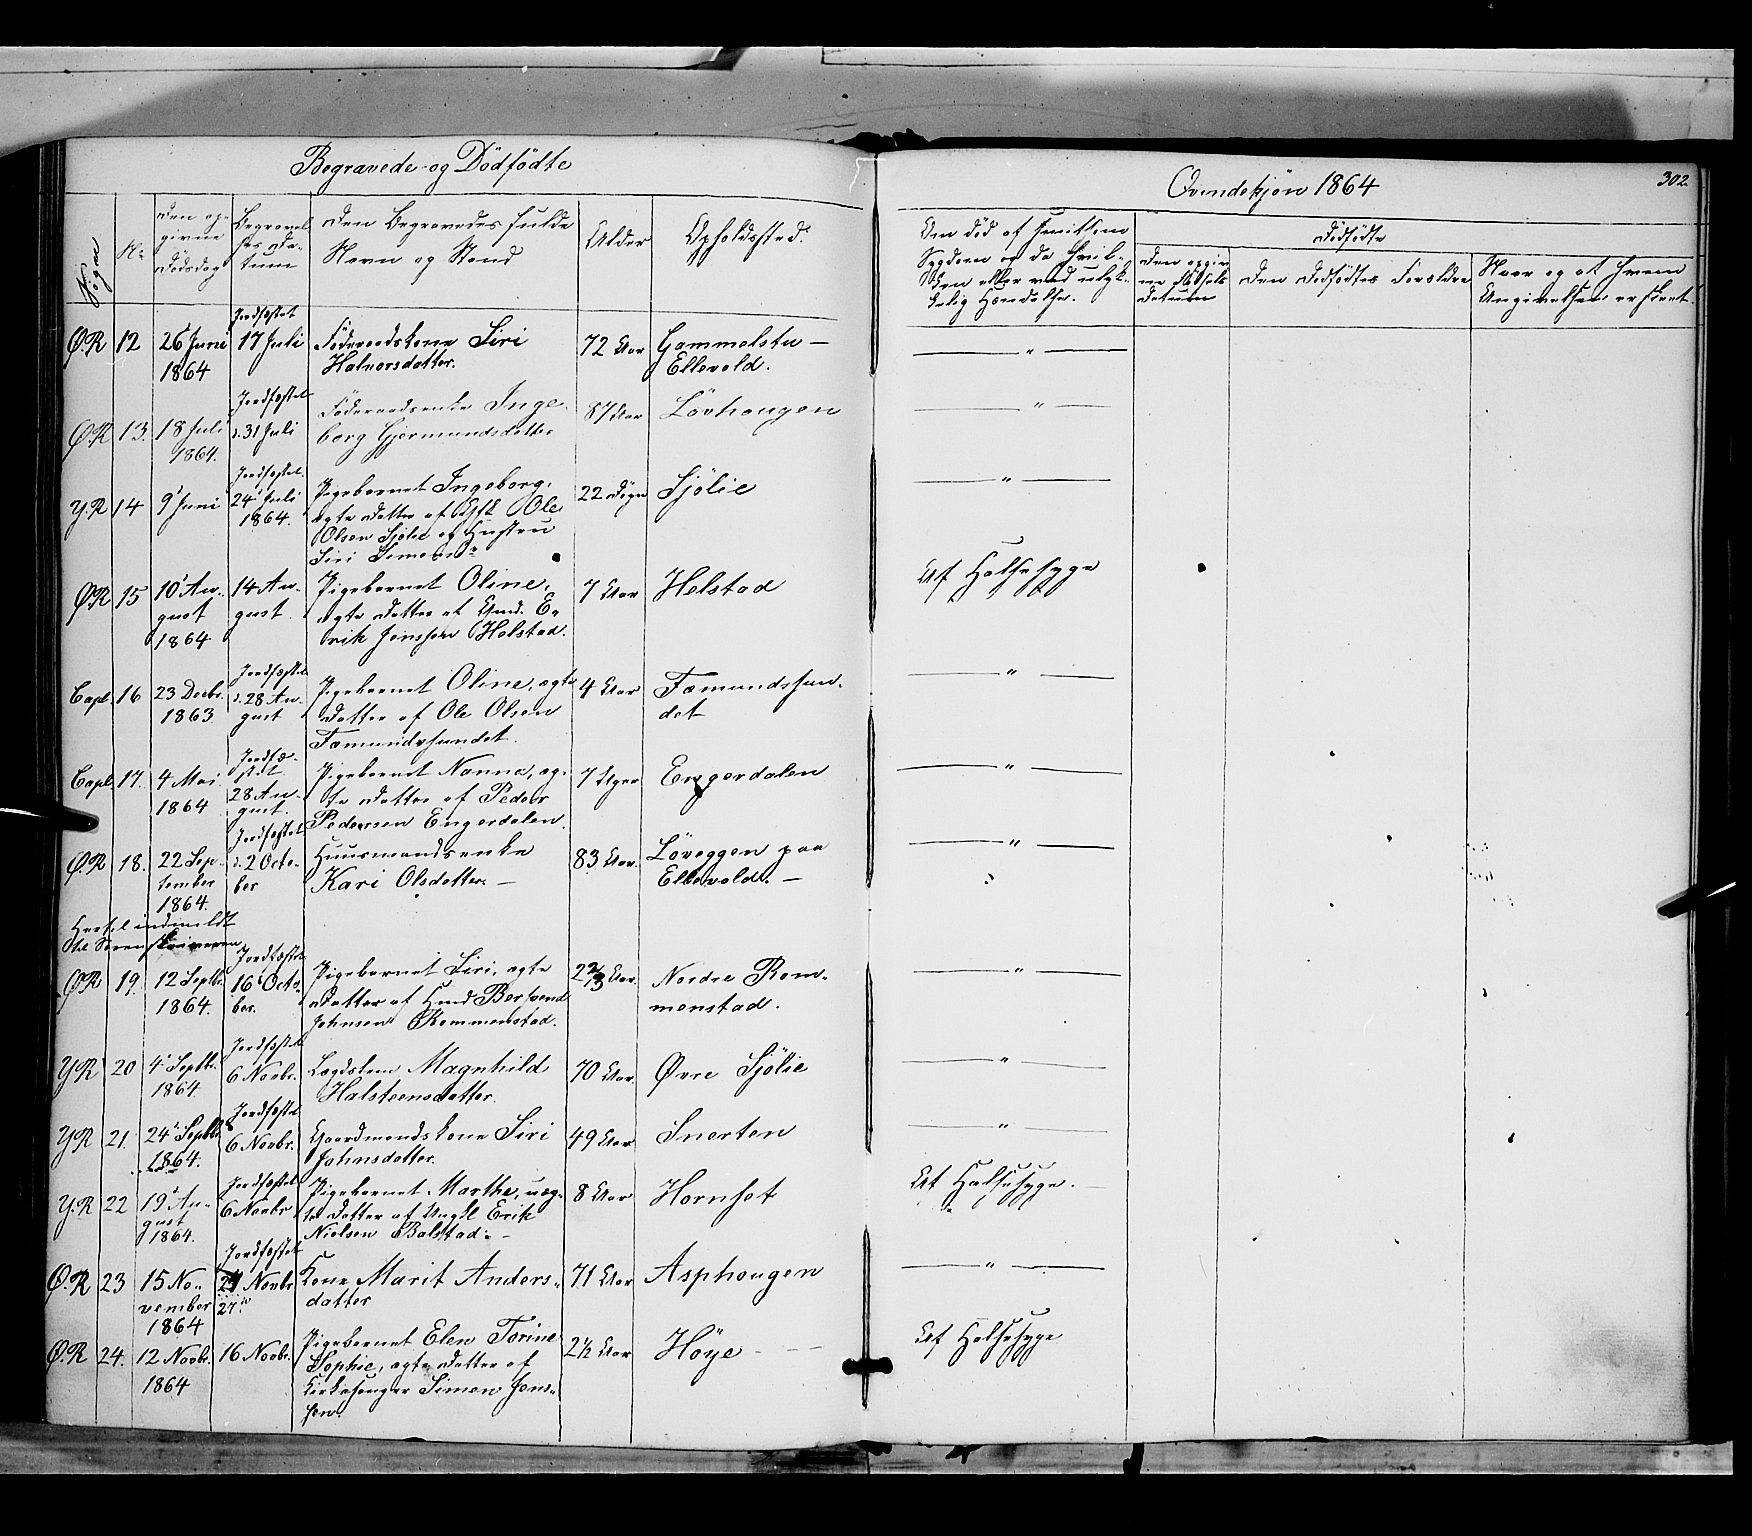 Begravede og Dödfödte
Qvindekjön 1864
302.
Sogn
Nr.
Den op-
givne
Dödsdag
Begravel-
ses Da-
tum
Den Begravedes fulde
Navn og Stand
Alder
Opholdssted.
Om död af smitsom
Sygdom og da hvil-
ken eller ved ulyk-
kelig Hændelse.
Dödfödte
Den opgiv-
ne Födsels
datum
Den Dödfödtes Forældre
Naar og at hvem
Angivelsen er skeet.
Ø.R 12 26 Juni 1864
Jordfæstet 17 Juli
Föderaadskone Siri
Halvorsdatter.
72 Aar
Gammelstu-
Ellevold.
— " —
Ø.R 13. 18 Juli 1864.
Jordfæstet d. 31 Juli
Föderaadsenke Inge-
borg Gjermundsdatter
87 Aar
Lövhaugen
— " —
Y.R 14 9 Juni
Jordfæstet 24 Juli 1864.
Pigebarnet Ingeborg,
ægte Datter af Ole
Olsen Sjölie og Hustru
Siri
22 Dögn
Sjölie
— " —
Ø.R 15 10 August 1864
14 August.
Pigebarnet Oline,
ægte Datter af Gmd. E-
rik Jonssen Helstad.
7 Aar
Helstad
Af Halsesyge
Capel. 16 23 Decbr. 1863
Jordfæstet d. 28 August
Pigebarnet Oline, ægte
Datter af Ole Olsen
Fæmundssundet.
4 Aar
Fæmundssun-
det
— " —
Capel 17. 4 Mai 1864
Jordfæ-
stet 28 August.
Pigebarnet Nanna, æg-
te Datter af Peder
Pedersen Engerdalen.
7 Uger
Engerdalen
— " —
Ø.R 18. 22 September 1864.
Jordfæstet d. 2 October
Huusmandsenke
Kari Olsdatter. —
83 Aar.
Löveggen paa
Ellevold. —
— " —
Hertil indmeldt
til Sorenskriveren
Ø.R 19. 12 Septbr. 1864.
Jordfæstet 16 October.
Pigebarnet Siri, ægte
Datter af Hmd Bersvend
Johnsen Rommenstad.
2 2/3 Aar.
Nordre Rom-
menstad.
— " —
Y.R 20 4 Septbr. 1864.
Jordfæstet 6 Novbr.
Lægdslem Magnhild
Halsteensdatter.
70 Aar.
Øvre Sjölie
— " —
Y.R 21. 24 Septbr 1864.
Jordfæstet 6 Novbr.
Gaardmandskone Siri
Johnsdatter.
49 Aar
Snerten
— " —
Y.R 22 19 August 1864.
Jordfæstet 6 Novbr
Pigebarnet Marthe, uæg-
te Datter af Ungkl Erik
Nielsen Balstad. —
8 Aar
Hornset
Af Halsesyge. —
Ø.R 23 15 November 1864
Jordfæstet Novbr
27
Kone Marit Anders-
datter
71 Aar
Asphougen
— " —
Ø.R 24. 12 Novbr. 1864
16 Novbr.
Pigebarnet Elen Torine
Sophie, ægte Datter af
Kirkesanger Simen Jons-
sen.
2 1/2 Aar
Höye
Af Halsesyge